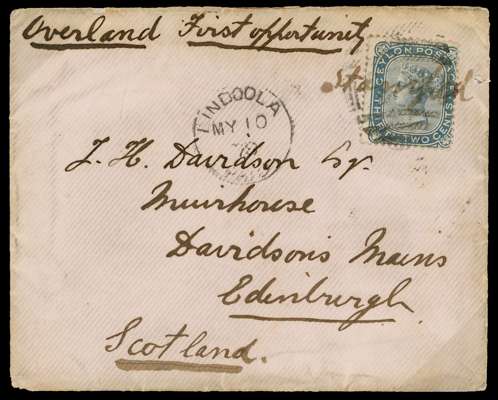 Overland First opportunity
CEYLON POSTAGE
THIRTY TWO CENTS
TINDOOLA
MY 10
J. H. Davidson Esq.
Muirhouse
Davidson's Mains
Edinburgh
Scotland.